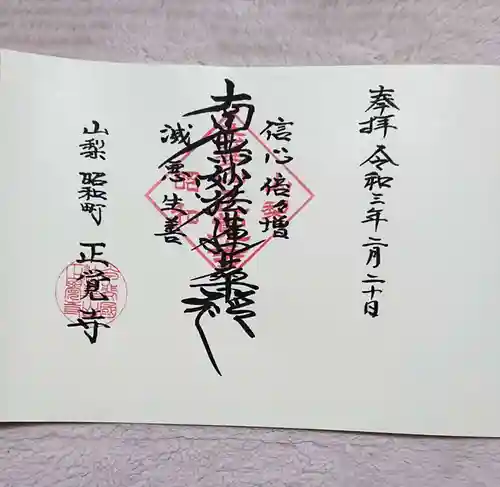 奉拝 令和三年二月二十日
信心倍増
南無妙法蓮華経
滅悪生善
山梨 昭和町 正覚寺